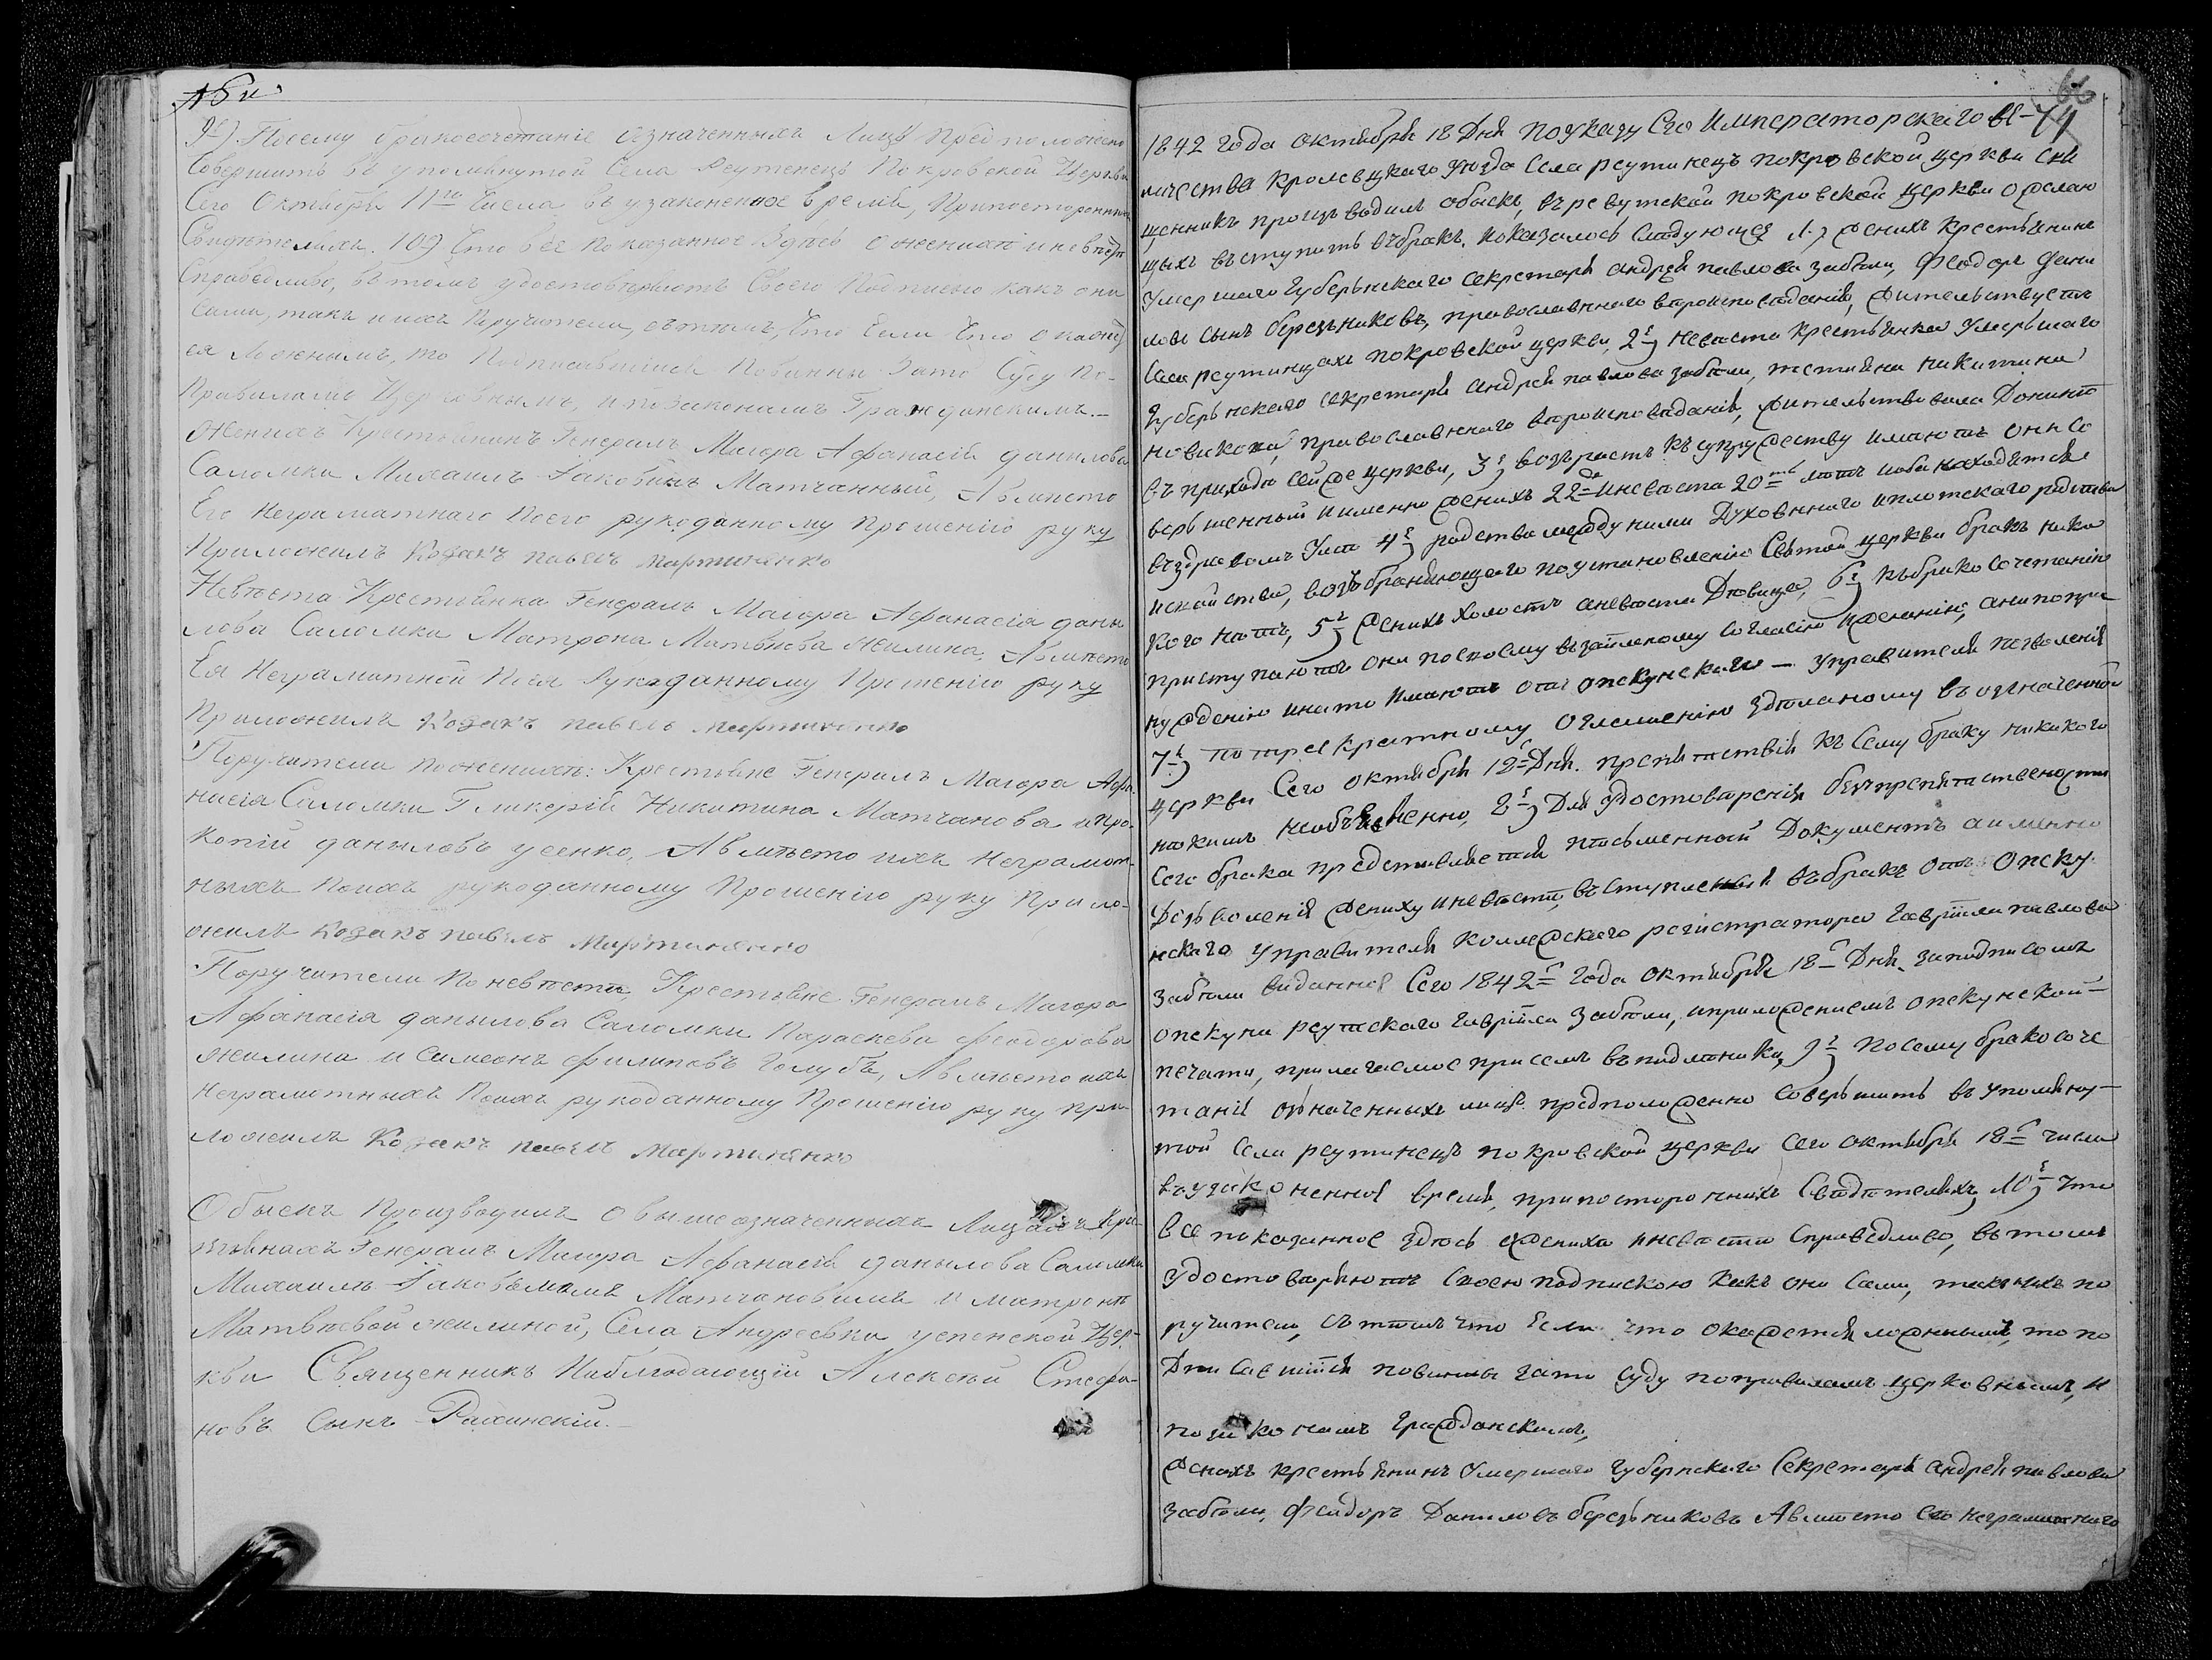 9е) Посему бракосочетаніе означенныхъ Лицъ Предположено
Совершить въ упомянутой Села Реутенецъ Покровской Церкви
Сего Октября 11го Числа въ узаконенное время, Припосторонныхъ
Свидѣтеляхъ. 10) Что все показанное Здѣсь о женихѣ и невѣстѣ
Справедливо, въ томъ удостовѣряютъ Своею Подписью какъ они
Сами, такъ и ихъ Поручители, съ тѣмъ, Что Если Что окажет
ся Ложнымъ, то Подписавшіися Повинны Зато Суду По-
Правиламъ Церковнымъ, и позаконамъ Гражданскимъ.—
Женихъ Крестьянинъ Генералъ Маіора Афанасія данылова
Саломки Михаилъ Іаковынъ Матчанный, А вмѣсто
Его Неграматнаго Поего рукоданному прошенію руку
Приложилъ Козакъ павелъ мартиненко
Невѣста Крестьянка Генералъ Маіора Афанасія даны
лова Саломки Матрона Матвѣева Жилина, А вмѣсто
Ея Неграмотной Поея Рукоданному Прошенію руку
Приложилъ Козакъ павелъ мартиненко
Поручители поженихѣ: Крестьяне Генералъ Маіора Афа-
насія Саломки Гликерій Никитина Матчанова и Про-
копій даныловъ усенко, А вмѣсто ихъ Неграмот-
ныхъ Поихъ рукоданному Прошенію руку Прило-
жилъ Козакъ павелъ Мартиненко
Поручители По невѣстѣ, Крестьяне Генералъ Маіора
Афанасія данылова Саломки Параскева Феодорова
жилина и Симеонъ филиповъ Голубъ, А вмѣсто ихъ
Неграмотныхъ Поихъ рукоданному Прошенію руку при
ложилъ Козакъ павелъ Мартиненко
Обыскъ Производилъ о вышеозначенныхъ Лицахъ Крес-
тьянахъ Генералъ Маіора Афанасія данылова Саломки
Михаилѣ Іаковлевымъ Матчановымъ и матронѣ
Матвѣевой жилиной, Села Андреевки успенской Цер-
кви Священникъ Наблюдающій Алексѣй Стефа-
новъ Сынъ Рахинскій.—
66
71
1842 года октября 18 Дня поуказу Его Императорскаго ве-
личества кролевцкаго уезда Села реутинецъ покровской церкви свя
щенникъ произъводилъ обыскъ, въ реутской покровской церкви о желаю
щыхъ въступить въ бракъ. показалось слѣдующее 1.) женихъ крестьянинъ
умершаго Губерньскаго секретаря андрея павлова забѣли, Феодоръ Дани
ловъ сынъ березьниковъ, православнаго вѣроисповѣданія, жительствуетъ
Села реутинцахъ покровской церкви, 2е) невѣста крестьянка умерьшаго
Губерьнскаго секретаря андрея павлова забѣли, татіяна никитина
новикова, православнаго вѣроисповѣданія, жительствовала Донинѣ
въ приходѣ сейже церкви, 3е) возърастъ къ супружеству имѣютъ они со
верьшенный и именно женихъ 22 а невѣста 20ть лѣтъ и оба находятся
въ здравомъ умѣ 4е) родства между ними Духовнаго и плотскаго родства
и свойства, возъбраняющаго по установленію Святой церкви бракъ ника
кого нѣтъ, 5е) женихъ холостъ а невѣста Дѣвица, 6е) къ бракосочетанію
приступаютъ они посвоему взаимному согласію и желанію, а не по при
нужденію и на то имѣютъ отъ опекунскаго — управителя позволенія
7е) по троекратному оглашенію здѣланому въ означенной
церкви сего октября 18 Дня. препятствія къ сему браку никакого
никимъ необъявленно, 8е) Для удостовѣренія безпрепятственности
сего брака представляется письменный Документъ а именно
Дозволенія жениху и невѣстѣ, въступленія въ бракъ отъ опеку-
нскаго управителя коллежскаго регистратора гавріила павлова
забѣли виданное сего 1842 года октября 18 Дня. за подписомъ
опекуна реутскаго гавріила забѣли, и приложеніемъ опекунской —
печати, прилагаемое при семъ въ подлинику, 9е) посему бракосоче
таніе означенныхъ лицъ предположенно совершить въ упомяну-
той села реутинецъ покровской церкви сего октября 18 числа
въ узаконенное время, припостороннихъ свидѣтеляхъ, 10е) Что
все показанное здѣсь о женихѣ и невѣстѣ справедливо, въ томъ
удостовѣряютъ своею подпискою какъ они сами, такъ и ихъ по
ручители, съ тѣмъ что если что окажется ложнымъ, то по
Дписавшіися повинны зато суду поправиламъ церковнымъ, и
позаконамъ гражданскимъ,
женихъ крестьянинъ умершаго губернскаго секретаря андрея павлова
забѣли, феидоръ Даниловъ березьниковъ А вмѣсто его неграмотнаго